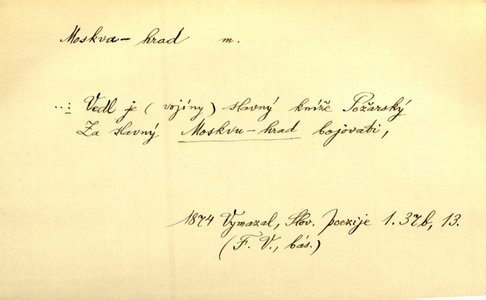 Moskva-hrad m.
...: Vedl je (vojíny) slavný kníže Požarský
Za slavný Moskvu-hrad bojovati,
1874 Vymazal, Slov. poezije 1. 376, 13.
(F. V., bás.)